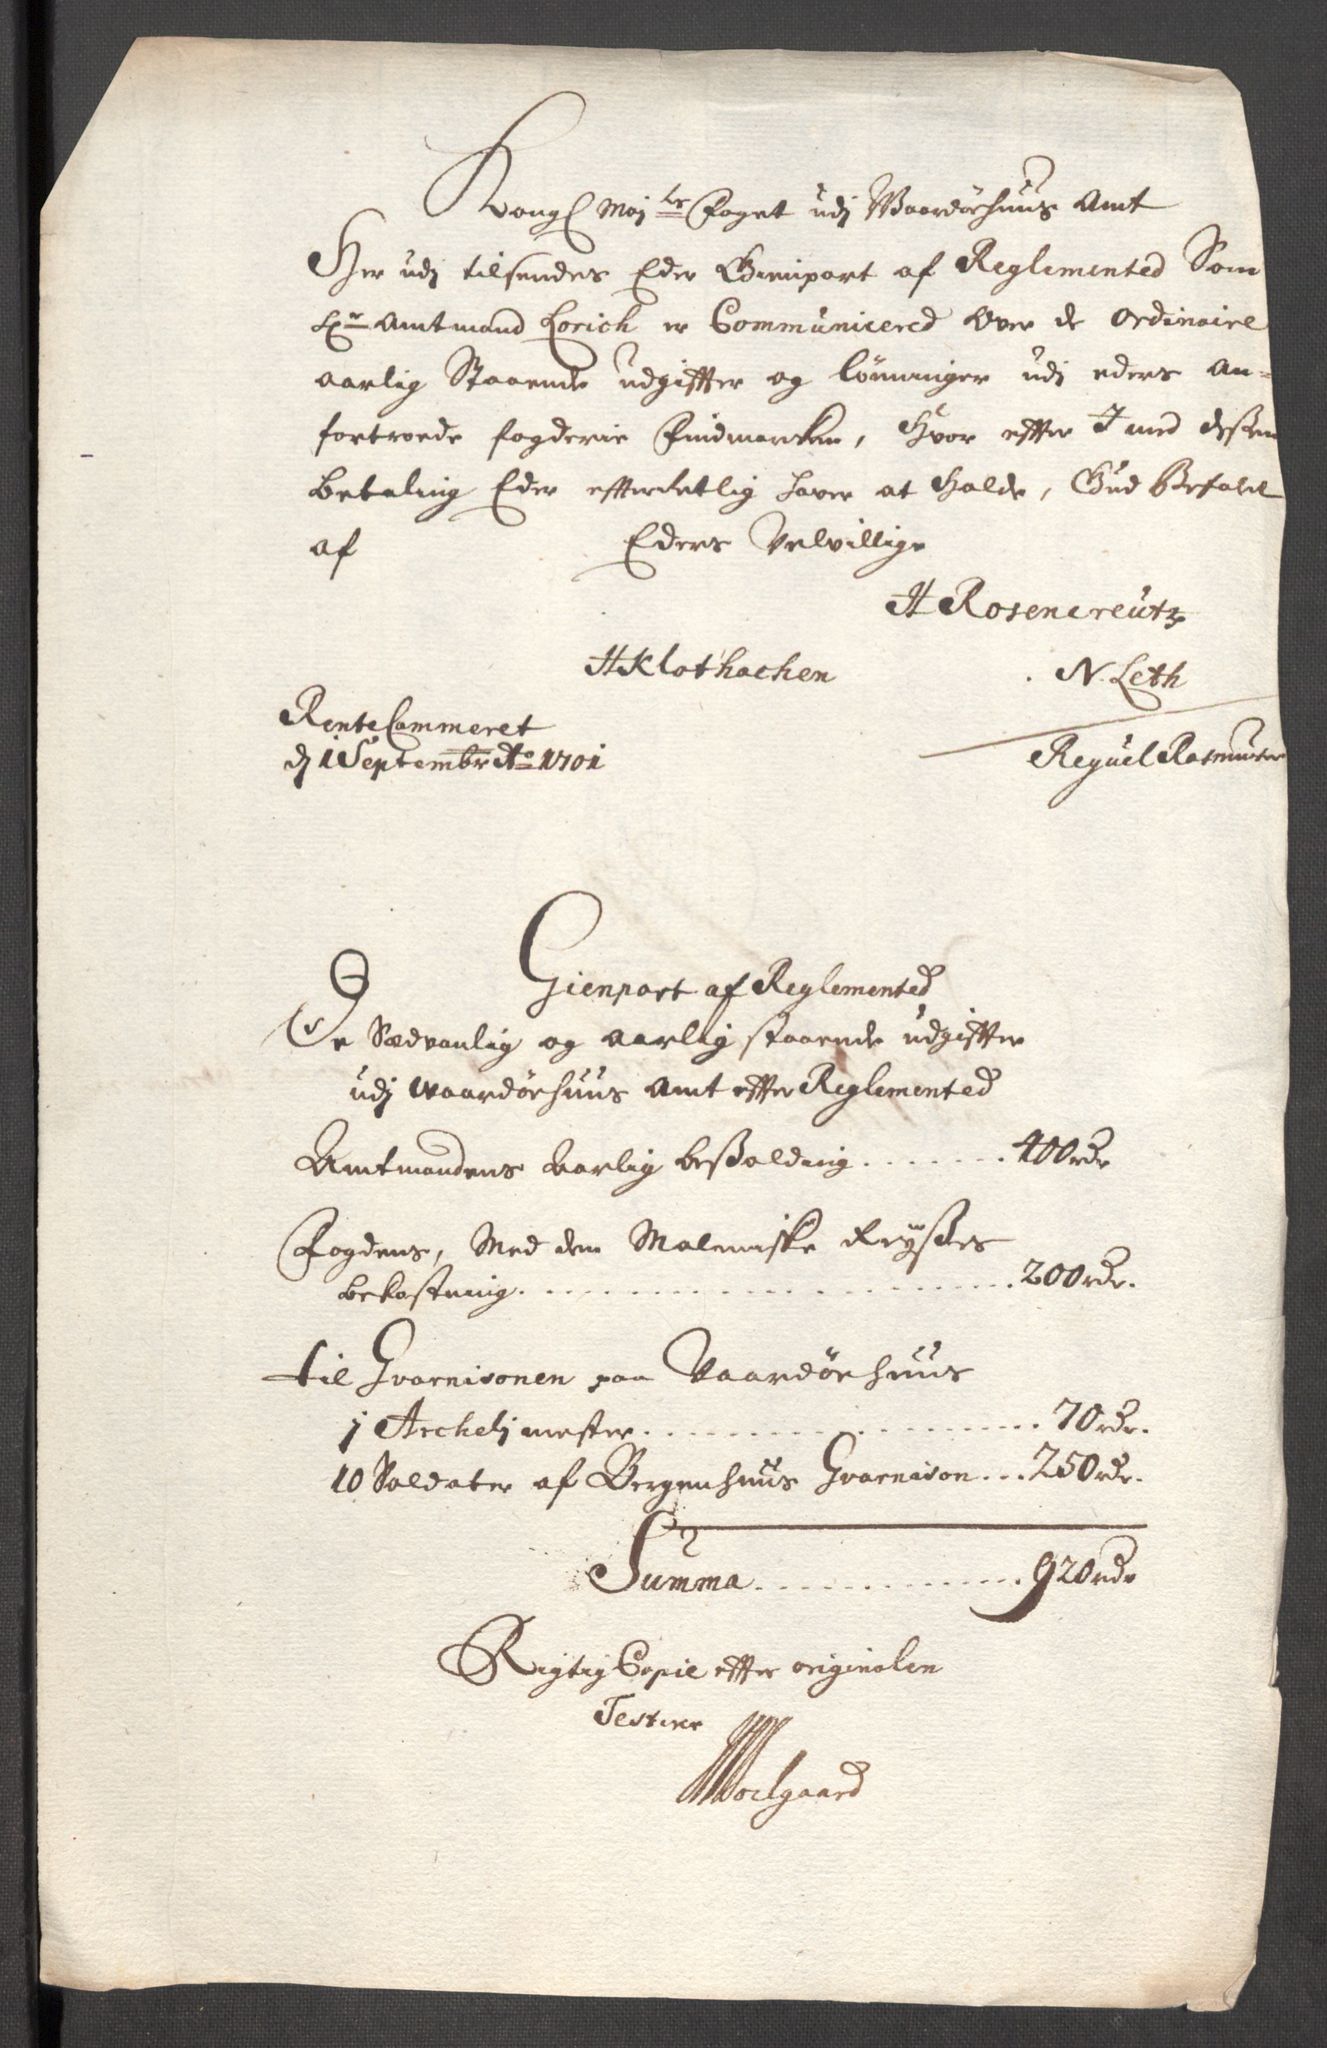 Kongl Maj:ts Foget udj Waardöehuus Amt
Her udj tilsendes Eder Gienpart af Reglemented Som
Hr Amtmand Lorich er Communicered Over de Ordinaire
aarlig Staaende udgiffter og lönninger udi eders an-
fortroede fogderie Findmarken, Hvor effter I med dessen
betaling Eder efterretlig haver at Holde, Gud Befalet
af Eders Velvillige
H Rosencreutz
H Klothachen N. Leth
Rente Cammeret
dj 1 Septembr Ao 1701 Reguel Rasmusen
Gienpart af Reglemented
De Sædvanlig og aarlig staaende udgiffter
udj Waardöehuus Amt effter Reglemented
Amtmandens Aarlig besolding . . . . . . . 400 rdr
Fogdens, Med den Malmiske Reyses
bekostning . . . . . . . . . . . . . . . . 200 rdr.
til Gvarnisonen paa Vaardöehuus
j Archelj mester . . . . . . . . . . . . . . 70 rdr.
10 Soldater af Bergenhuus Gvarnison . . . 250 rdr.
Summa . . . . . . . . . . . . 920 rdr
Rigtig Copie effter originalen
Testerer